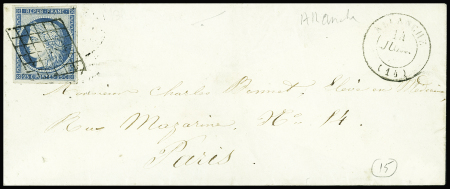 REPUB. FRANC.
Allanche
ALLANCHE
14
JUIL.
(14)
Monsieur Charles Bonnet, Elève en Médecine
Rue Mazarine, No 84
Paris
15